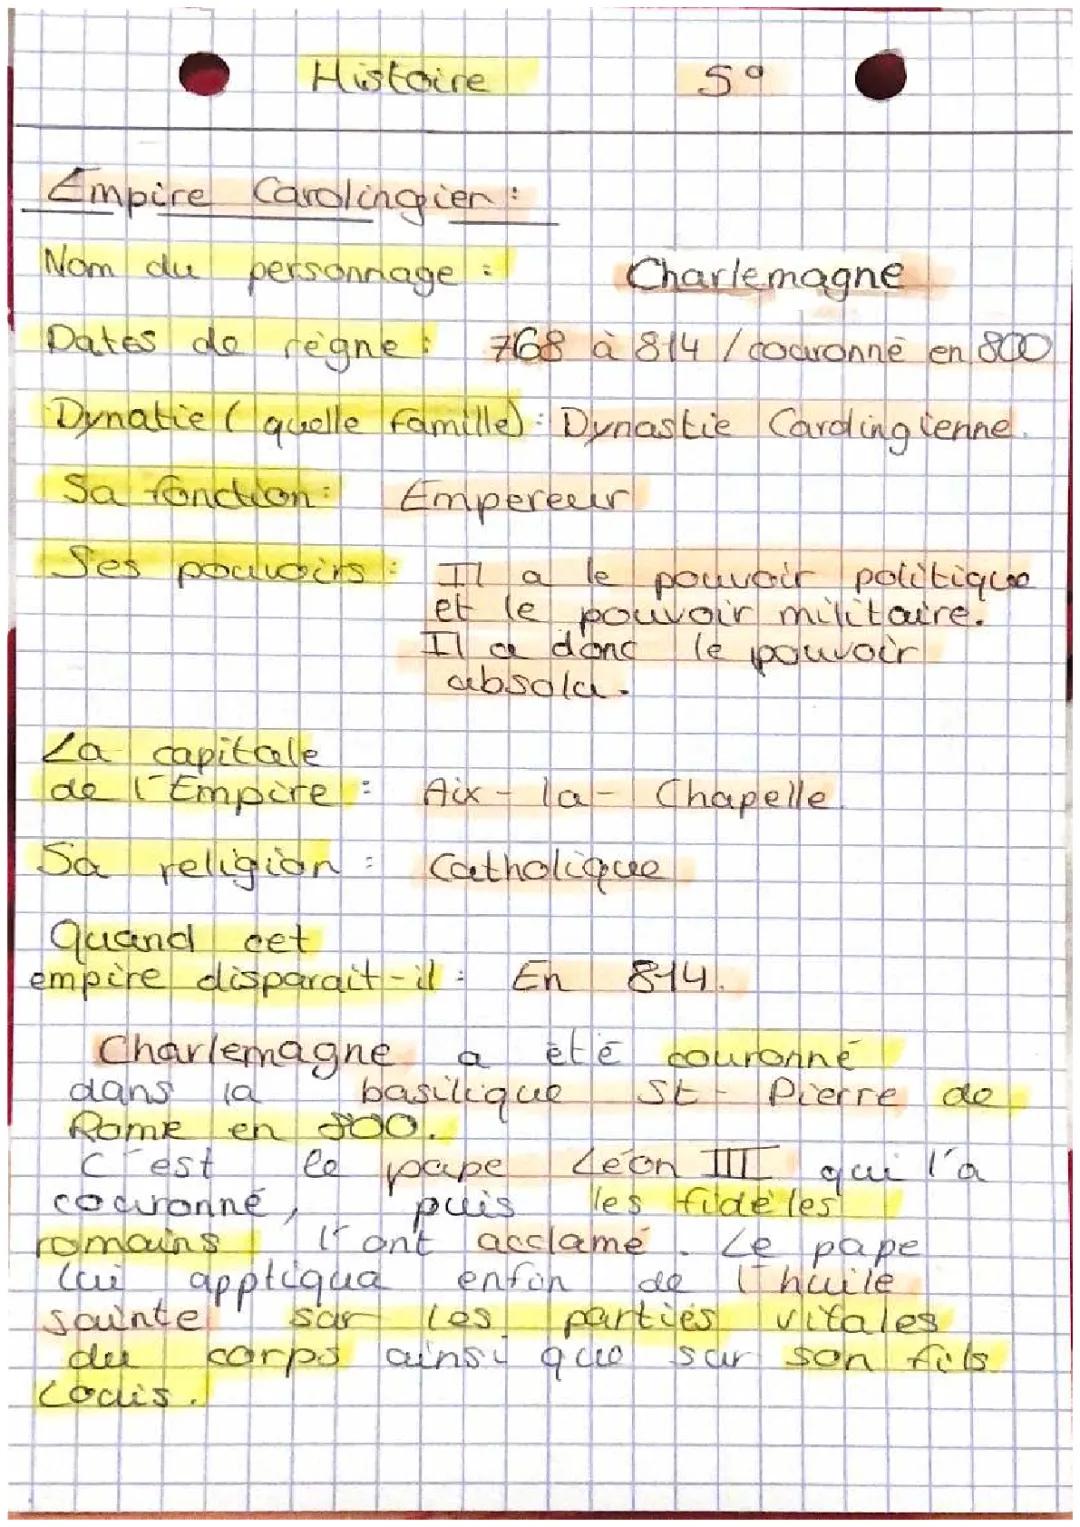 Histoire 5°
Empire Carolingien :
Nom du personnage : Charlemagne
Dates de règne : 768 à 814 / couronné en 800
Dynatie ( quelle famille) : Dynastie Carolingienne.
Sa fonction : Empereur
Ses pouvoirs : Il a le pouvoir politique
et le pouvoir militaire.
Il a donc le pouvoir
absolu.
La capitale
de l'Empire : Aix-la-Chapelle
Sa religion : Catholique
Quand cet
empire disparait-il : En 814.
Charlemagne a été couronné
dans la basilique St-Pierre de
Rome en 800.
C'est le pape Léon III qui l'a
couronné, puis les fidèles
romains l'ont acclamé. Le pape
lui appliqua enfin de l'huile
sainte sur les parties vitales
du corps ainsi que sur son fils
Louis.